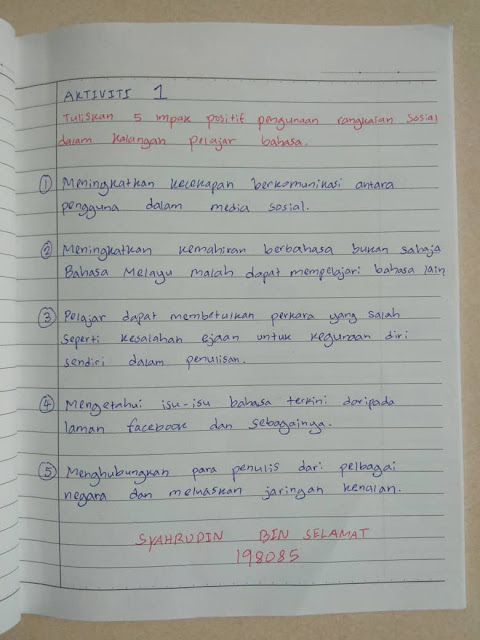 AKTIVITI 1
Tuliskan 5 impak positif pengunaan rangkaian sosial
dalam kalangan pelajar bahasa.
1 Meningkatkan kecekapan berkomunikasi antara
pengguna dalam media sosial.
2 Meningkatkan kemahiran berbahasa bukan sahaja
Bahasa Melayu malah dapat mempelajari bahasa lain
3 Pelajar dapat membetulkan perkara yang salah
seperti kesalahan ejaan untuk kegunaan diri
sendiri dalam penulisan.
4 Mengetahui isu-isu bahasa terkini daripada
laman facebook dan sebagainya.
5 Menghubungkan para penulis dari pelbagai
negara dan meluaskan jaringan kenalan.
SYAHRUDIN BIN SELAMAT
198085